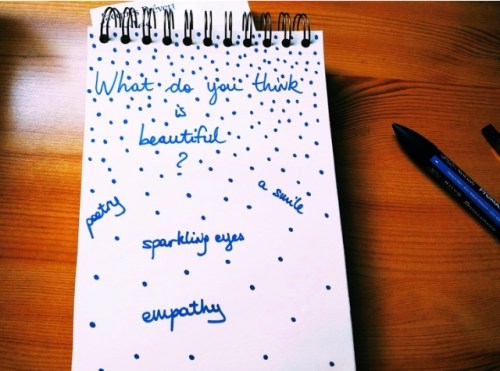 What do you think
is
beautiful
?
poetry
a smile
sparkling eyes
empathy